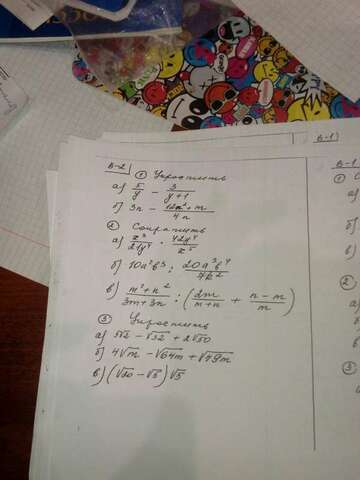 В-2
① Упростить
а) 5/y - 3/(y+1)
б) 3n - (12n²+m)/4n
② Сократить
а) z³/21y⁴ · 42y⁴/z⁵
б) 10a²b³ : 20a³b⁴/7k²
в) (m²+n²)/(3m+3n) : (2m/(m+n) + (n-m)/m)
③ Упростить
а) 5√2 - √32 + 2√50
б) 4√m - √64m + √49m
в) (√20 - √5)√5
В-1
①
а)
б)
в)
②
а)
б)
③